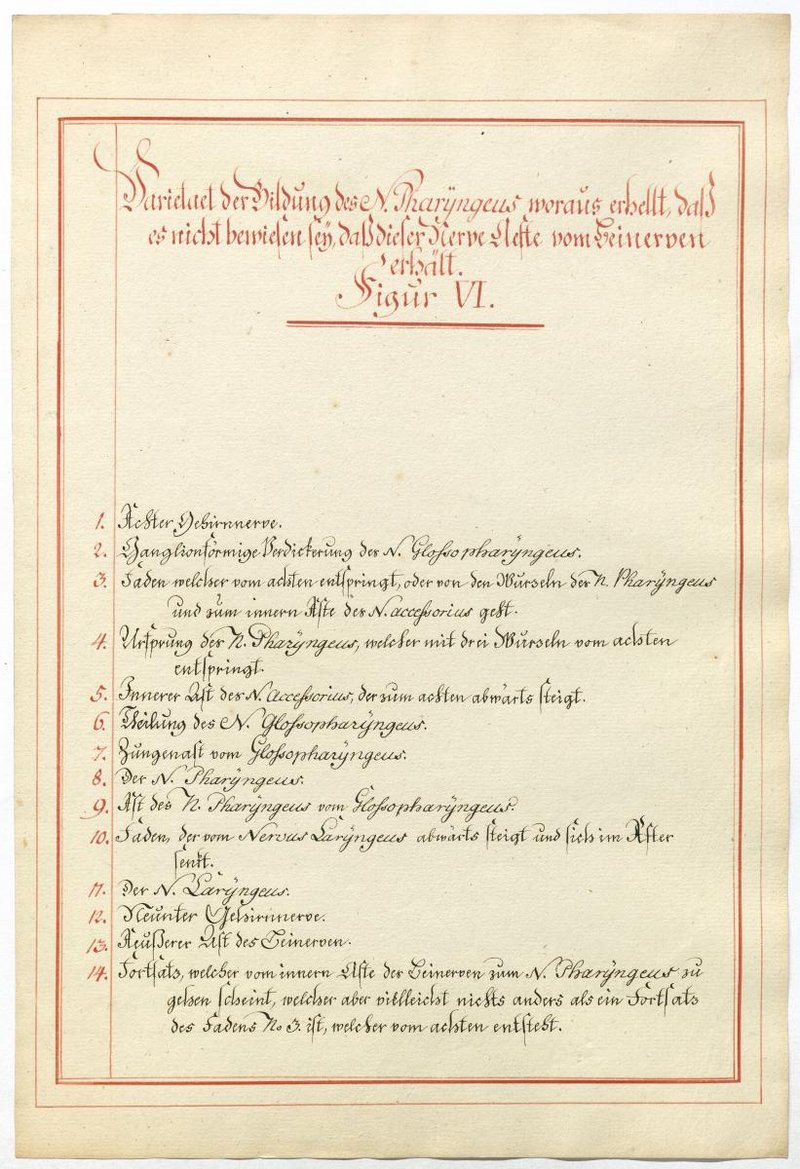 Varietaet der Bildung des N. Pharÿngeus woraus erhellt, daß
es nicht bewiesen sey, daß dieser Nerve Aeste vom Beinerven
erhält.
Figur VI.
1. Achter Gehirnnerve.
2. Ganglionförmige Verdickerung des N. Glossopharÿngeus.
3. Faden welcher vom achten entspringt, oder von den Wurzeln des N. Pharÿngeus
und zum innern Aste des N. accessorius geht.
4. Ursprung des N. Pharÿngeus, welcher mit drei Wurzeln vom achten
entspringt.
5. Innerer Ast des N. Accessorius, der zum achten abwärts steigt.
6. Theilung des N. Glossopharÿngeus.
7. Zungenast vom Glossopharÿngeus.
8. Der N. Pharÿngeus.
9. Ast des N. Pharÿngeus vom Glossopharÿngeus.
10. Faden, der vom Nervus Larÿngeus abwärts steigt und sich im
senkt.
11. Der N. Larÿngeus.
12. Neunter Gehirnnerve.
13. Aeußerer Ast des Beinerven.
14. Fortsatz, welcher vom innern Aste des Beinerven zum N. Pharÿngeus zu
gehen scheint, welcher aber villeicht nichts anders als ein Fortsatz
des Fadens No 3. ist, welcher vom achten entsteht.